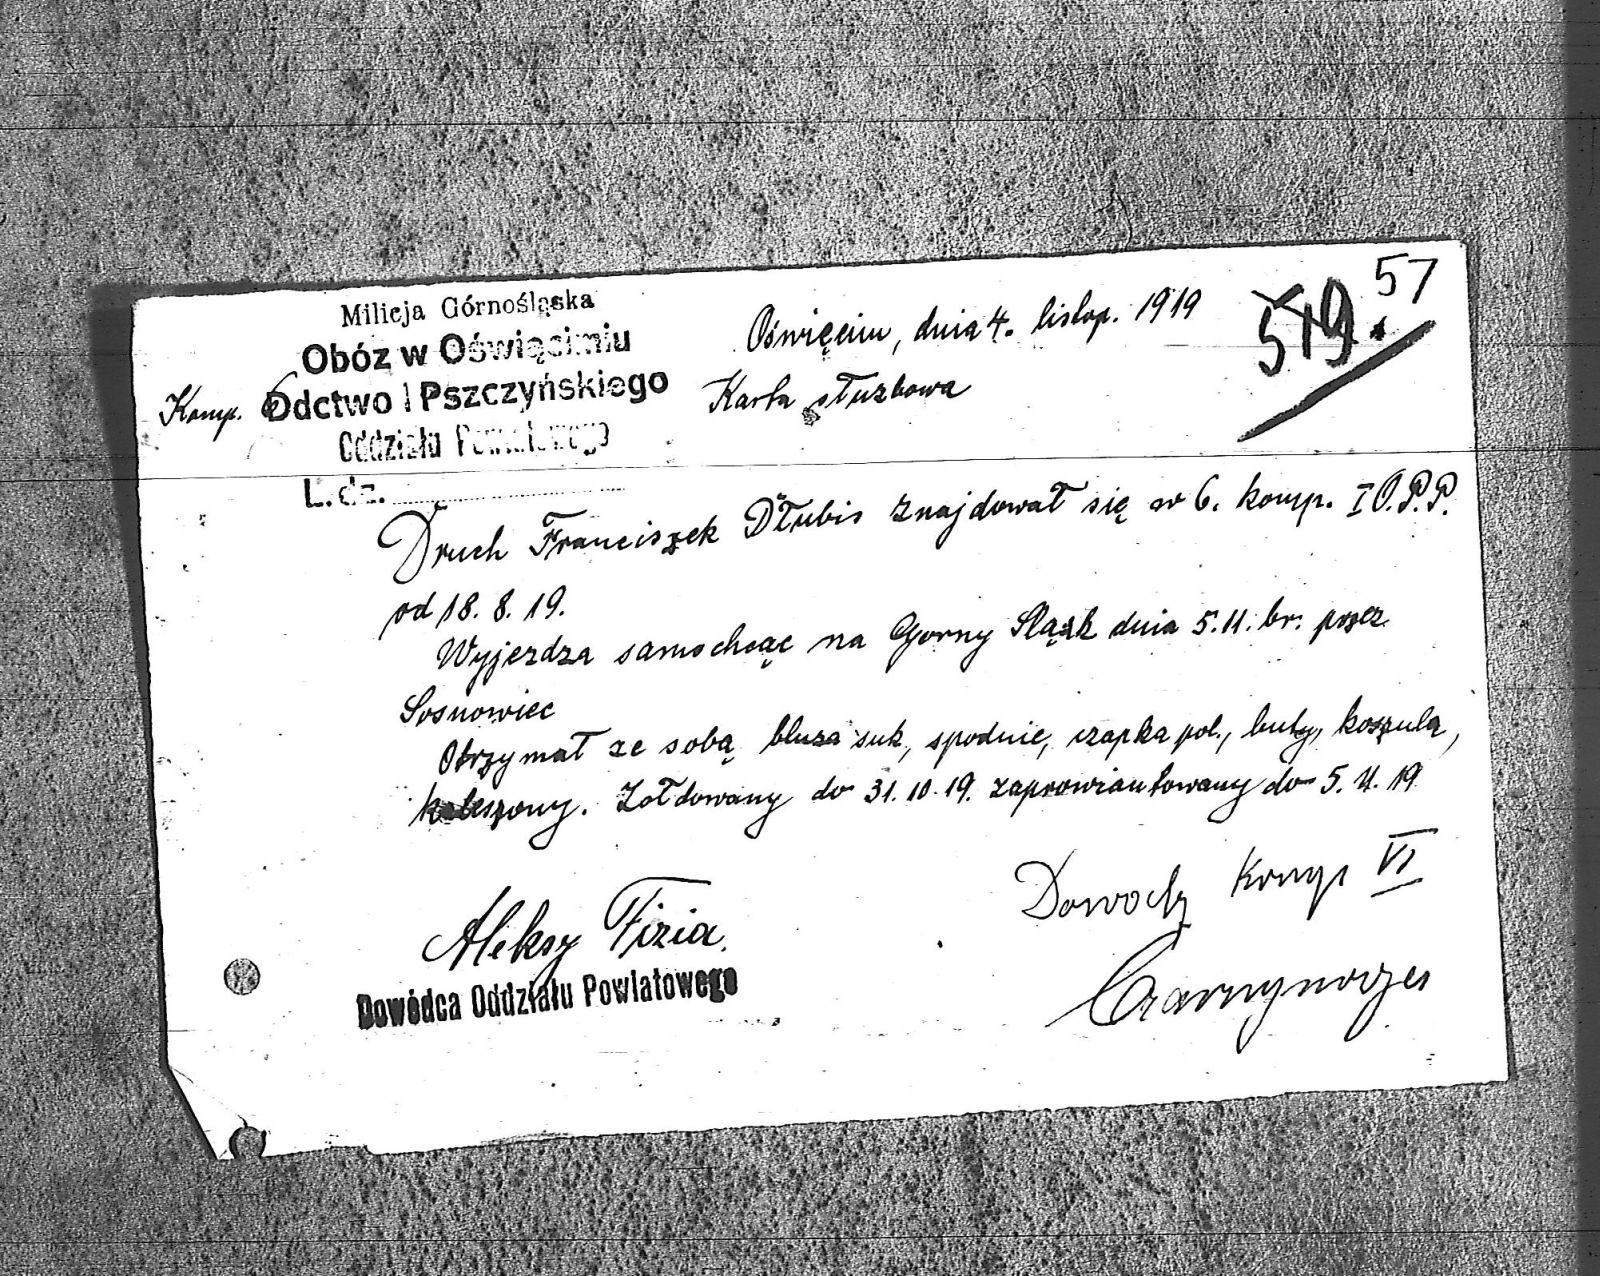 57
519.
Milicja Górnośląska
Obóz w Oświęcimiu
Komp. 6 Odctwo I Pszczyńskiego
Oddziału Powiatowego
L. dz.
Oświęcim, dnia 4. listop. 1919
Karta służbowa
Druch Franciszek Dłubis znajdował się w 6. komp. I O.P.P.
od 18. 8. 19.
Wyjezdza samochcąc na Gorny Sląsk dnia 5.11. br. przez
Sosnowiec
Otrzymał ze sobą bluza suk, spodnie, czapka pol., buty, koszula,
kaleszony. Zołdowany do 31.10.19. zaprowiantowany do 5.11.19
Dowodz Komp VI
Aleksy Fizia.
Dowódca Oddziału Powiatowego